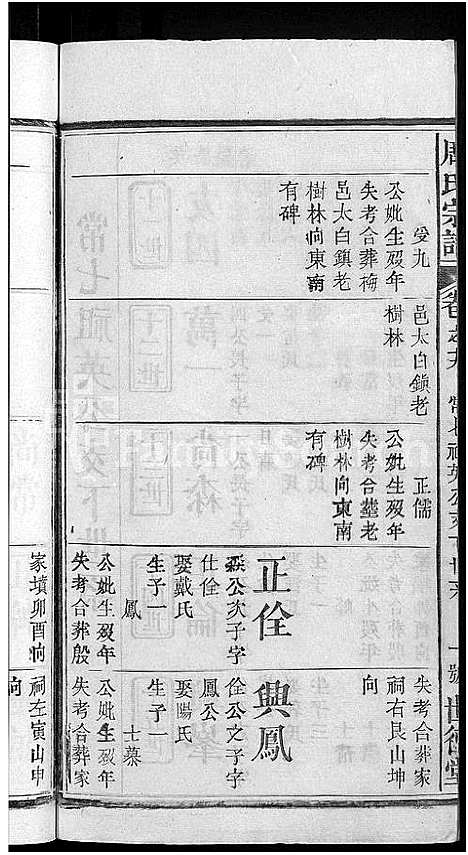 周氏宗譜
卷之九
常七祖英公交下世系
一號
世德堂
爰九
公妣生殁年
失考合葬梅
邑太白鎮老
樹林向東南
有碑
邑太白鎮老
樹林
正儒
公妣生殁年
失考合塟老
樹林向東南
有碑
正佺
森公次子字
仕佺
娶戴氏
生子一
鳳
公妣生殁年
失考合葬殷
家墳卯酉向
失考合葬家
祠右艮山坤
向
興鳳
佺公之子字
鳳公
娶陽氏
生子一
士慕
公妣生殁年
失考合葬家
祠左寅山申
向